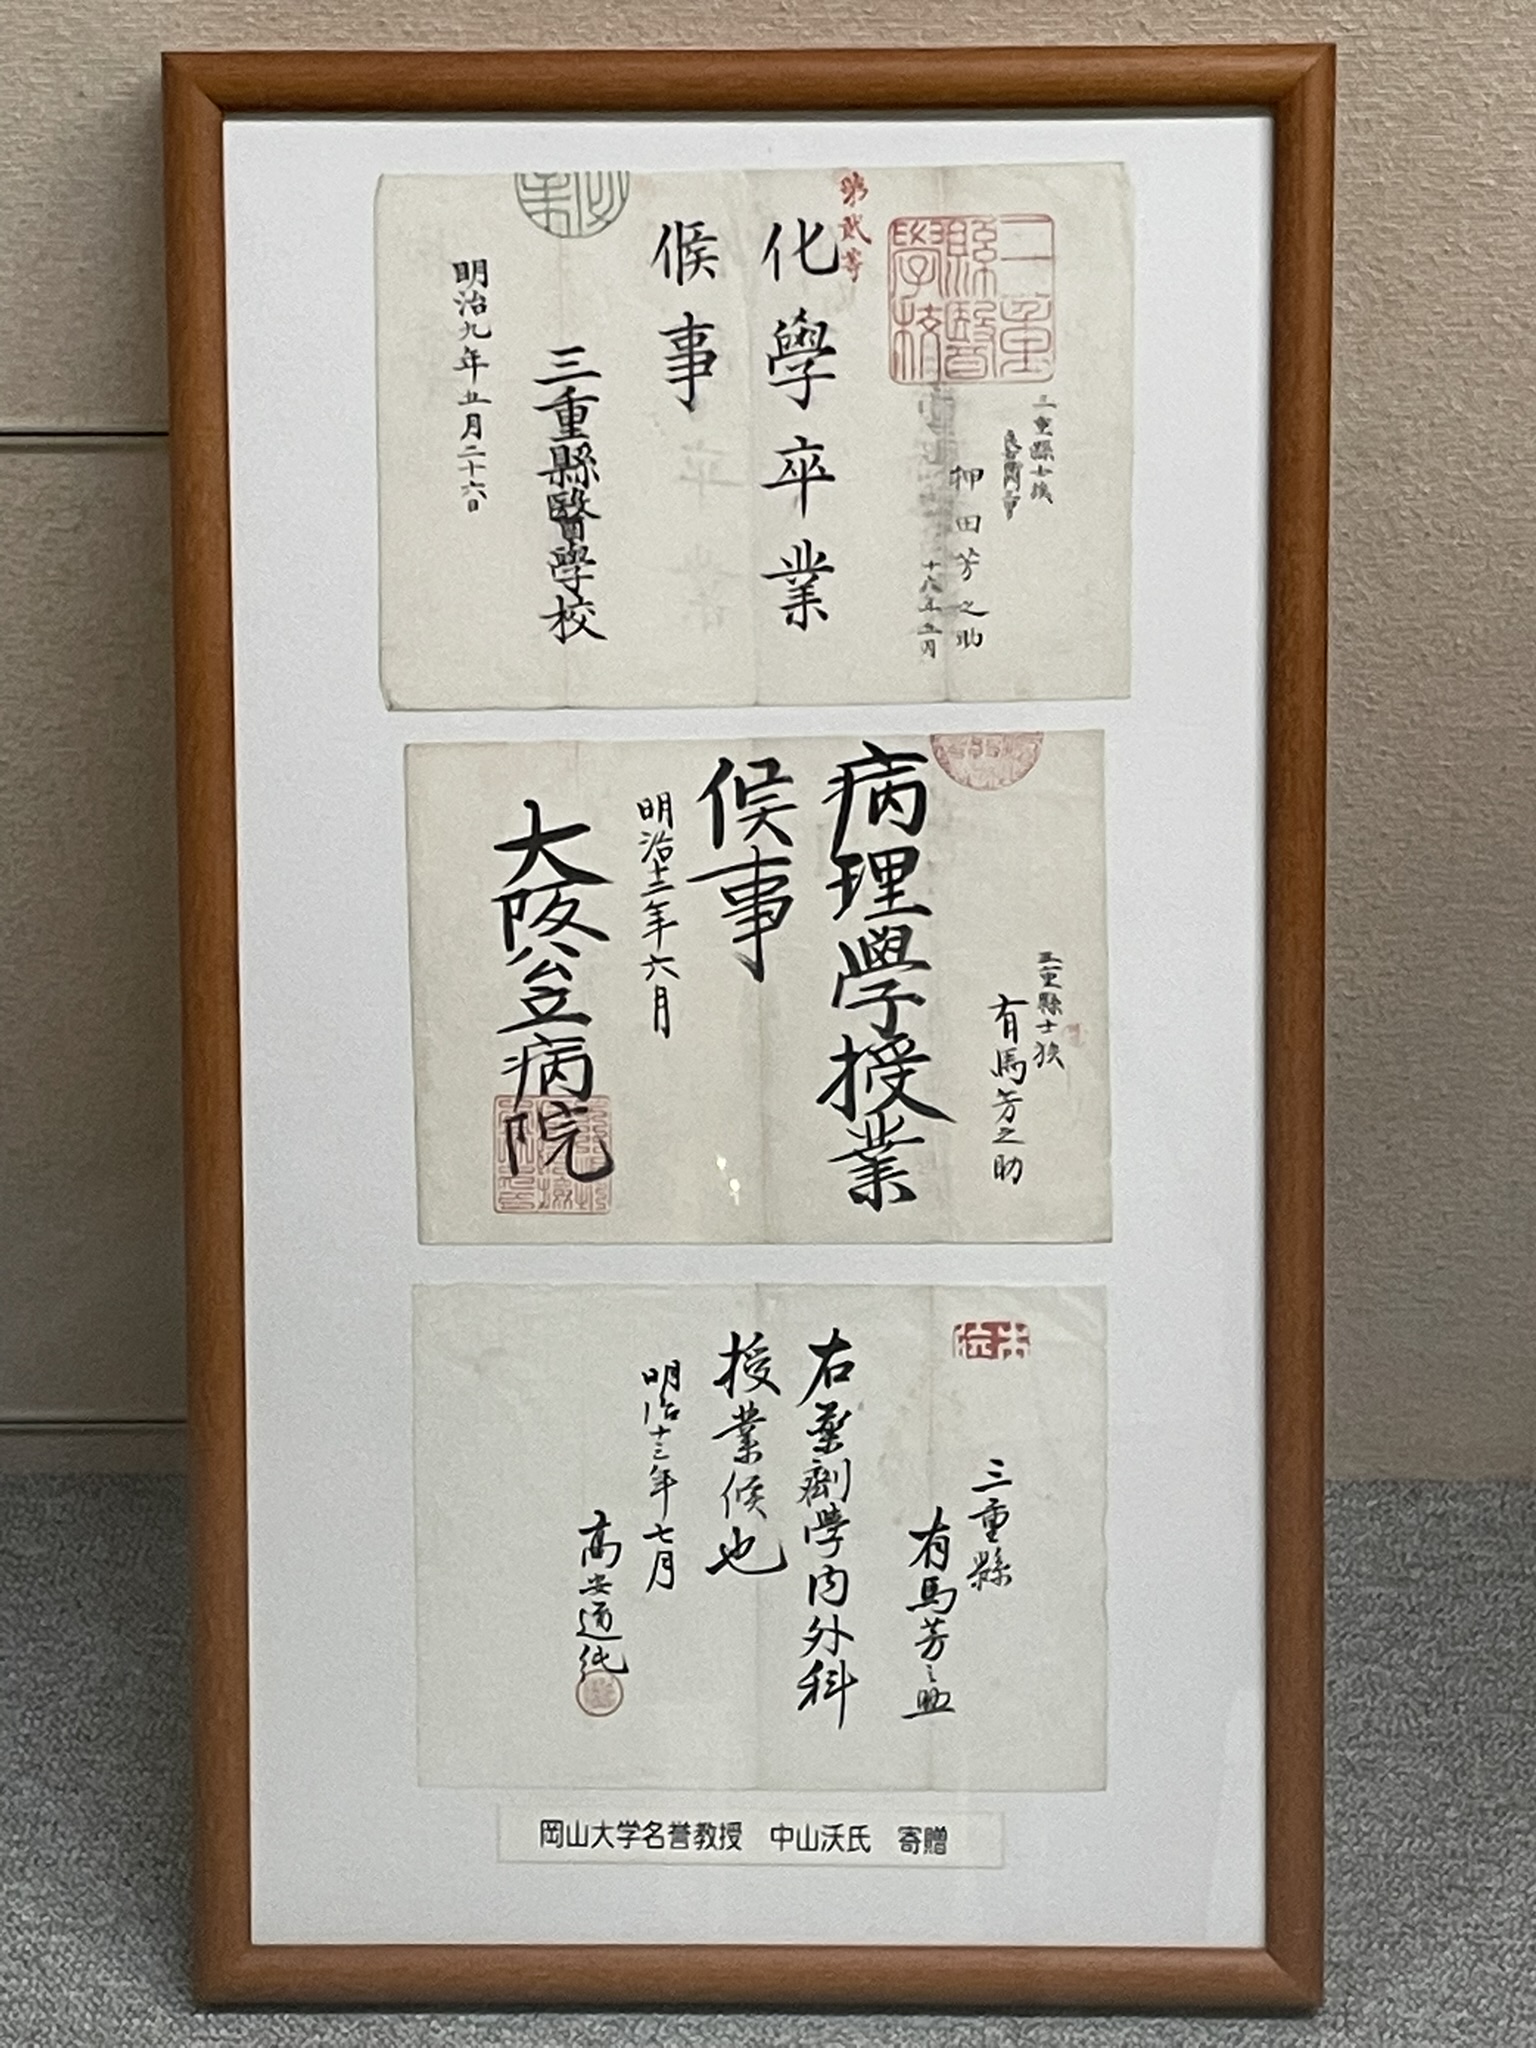 三重縣醫學校
第貳等
三重縣士族
柙田芳之助
十八年五月
化學卒業
候事
三重縣醫學校
明治九年五月二十六日
三重縣士族
有馬芳之助
病理學授業
候事
明治十二年六月
大阪公立病院
三重縣
有馬芳之助
右藥劑學内外科
授業候也
明治十三年七月
高安道純
岡山大学名誉教授 中山沃氏 寄贈